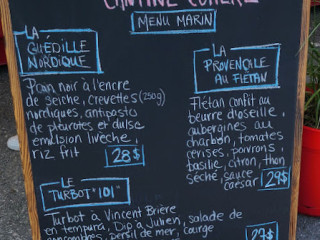 CANTINE CÔTIÈRE
MENU MARIN
LA
GUÉDILLE
NORDIQUE
Pain noir à l'encre
de seiche, crevettes (250g)
nordiques, antipasto
de pleurotes et dulse
émulsion livèche,
riz frit 28$
LA
PROVENÇALE
AU FLÉTAN
Flétan confit au
beurre d'oseille,
aubergines au
charbon, tomates
cerises, poivrons,
basilic, citron, thon
séché, sauce
caesar 29$
LE
TURBOT "101"
Turbot à Vincent Brière
en tempura, Dip à Julien, salade de
concombres, persil de mer, courge
27$